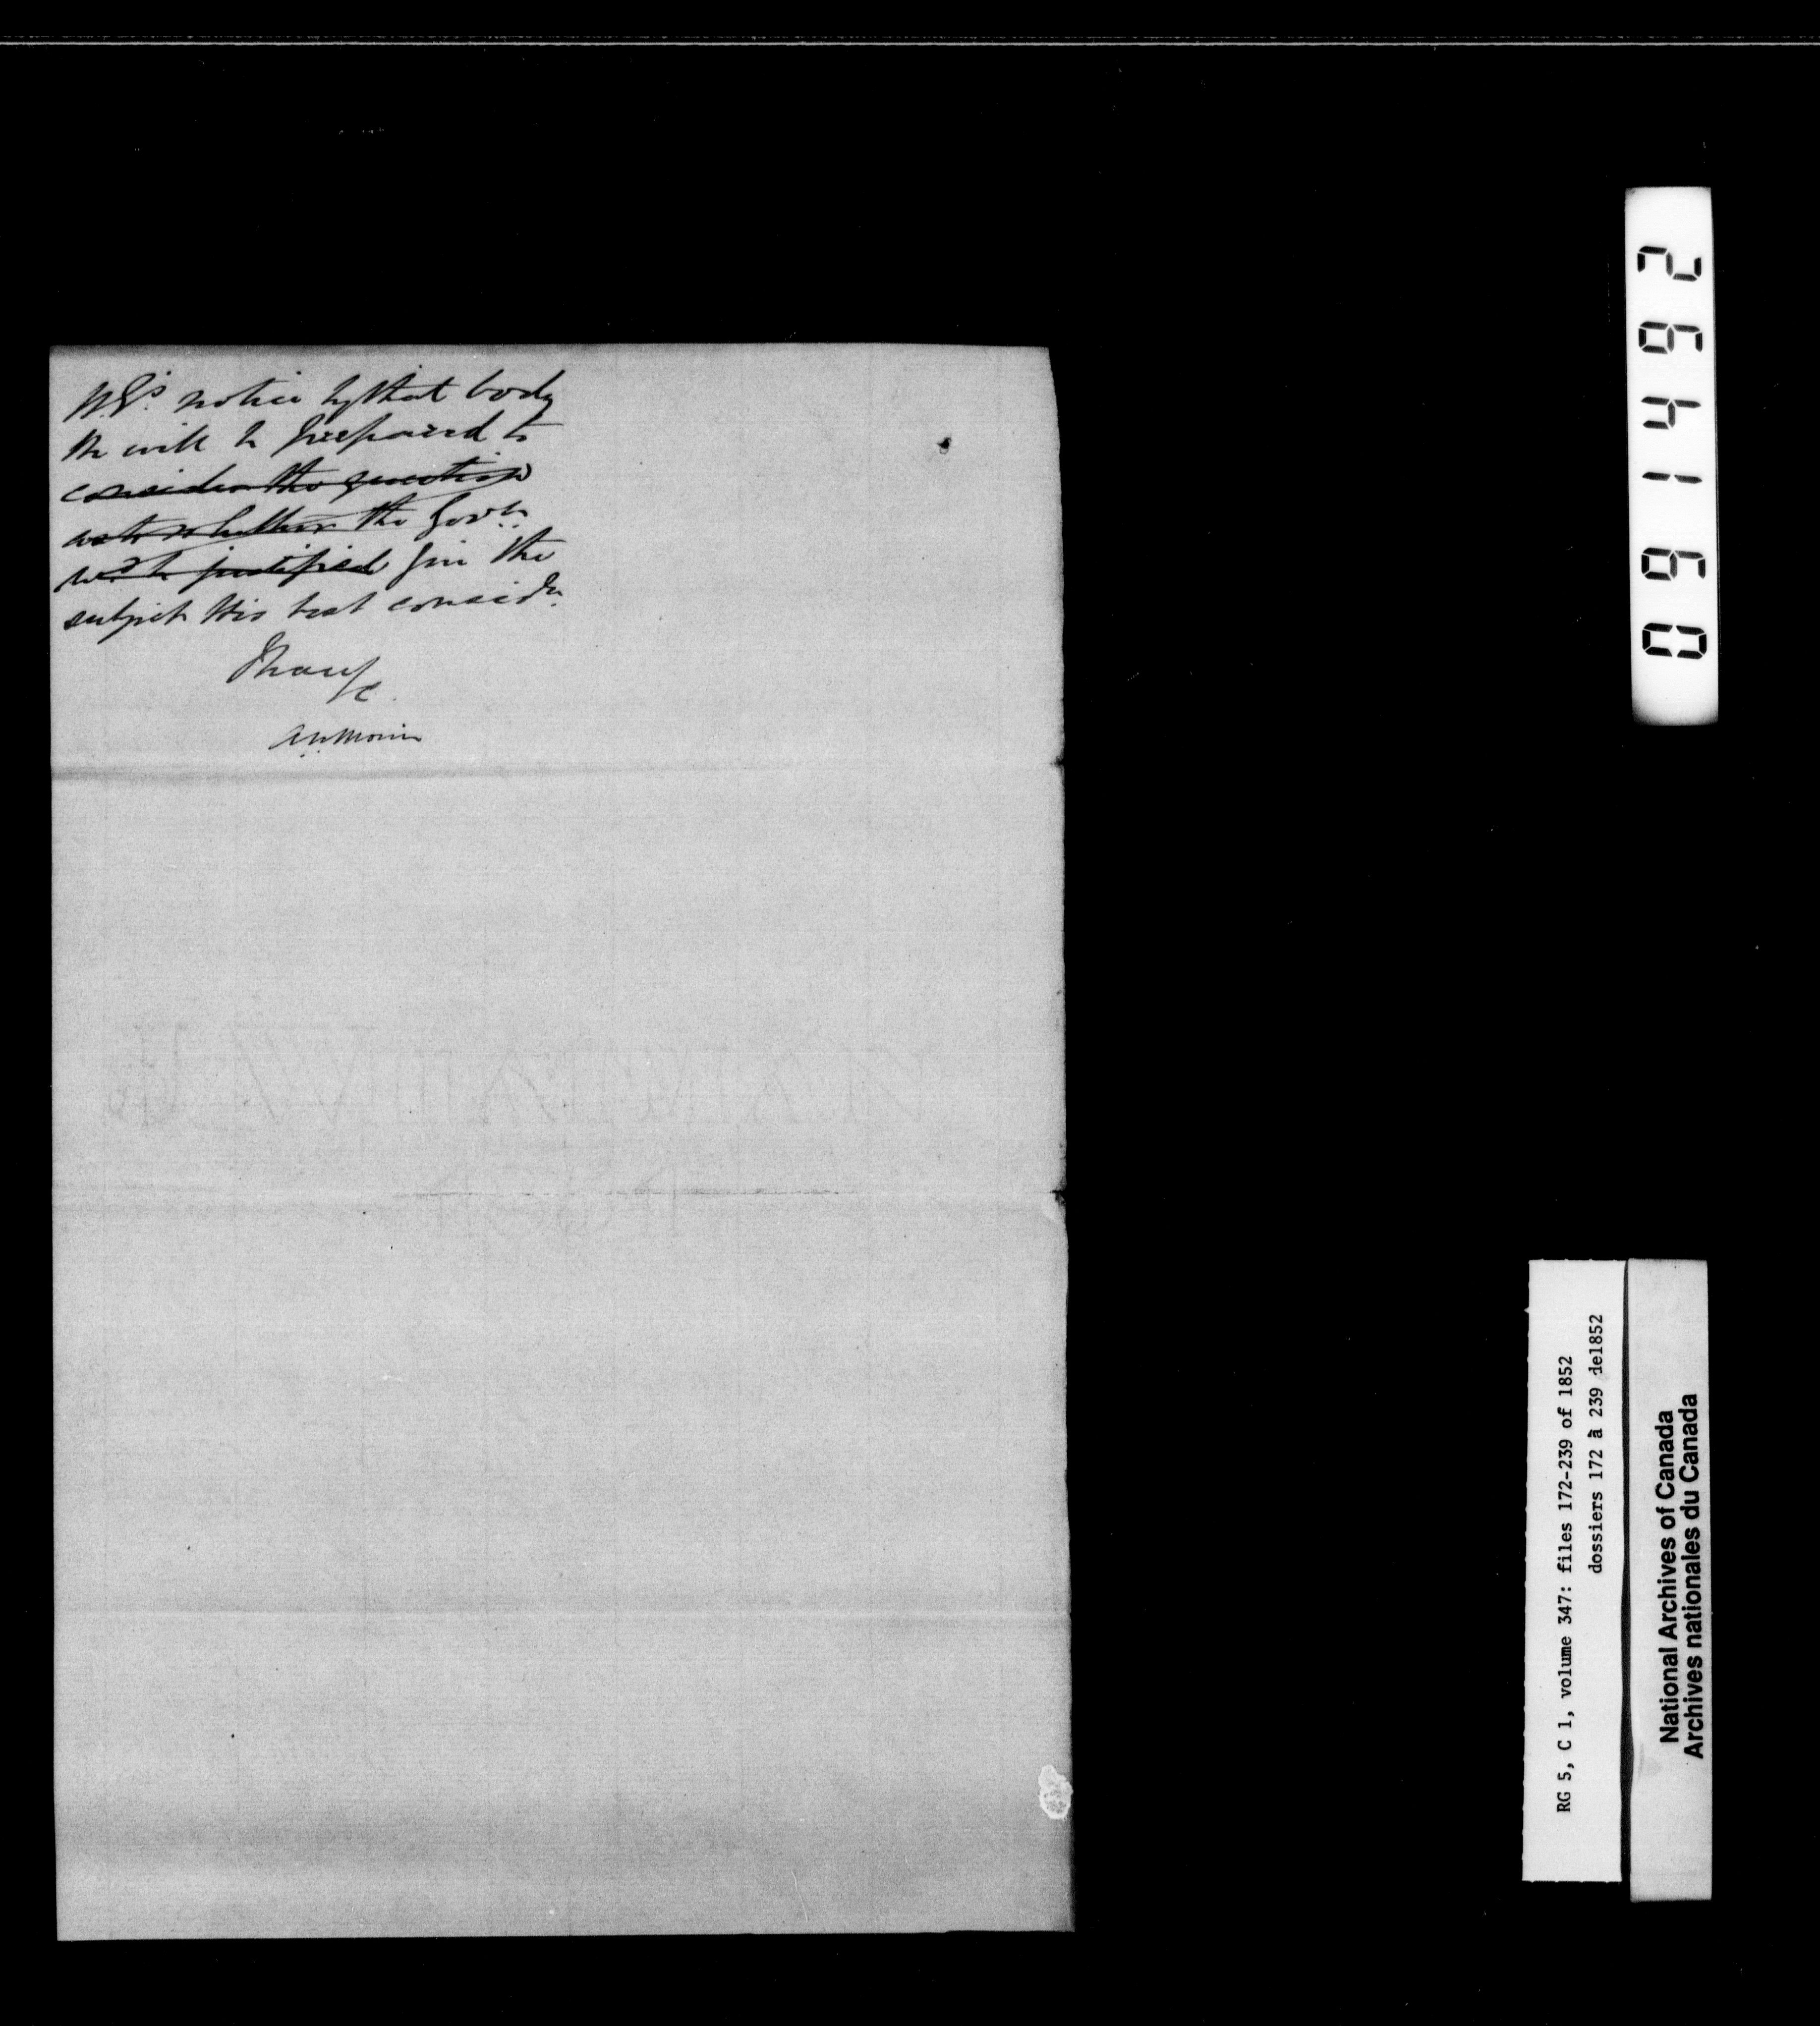 H.E's. notice by that body
He will be prepared to
consider the question
as to whether the Govt.
wd. be justified give the
subject His best considn.
I have &c
A.N. Morin
091492
RG 5, C 1, volume 347: files 172-239 of 1852
dossiers 172 à 239 de1852
National Archives of Canada
Archives nationales du Canada